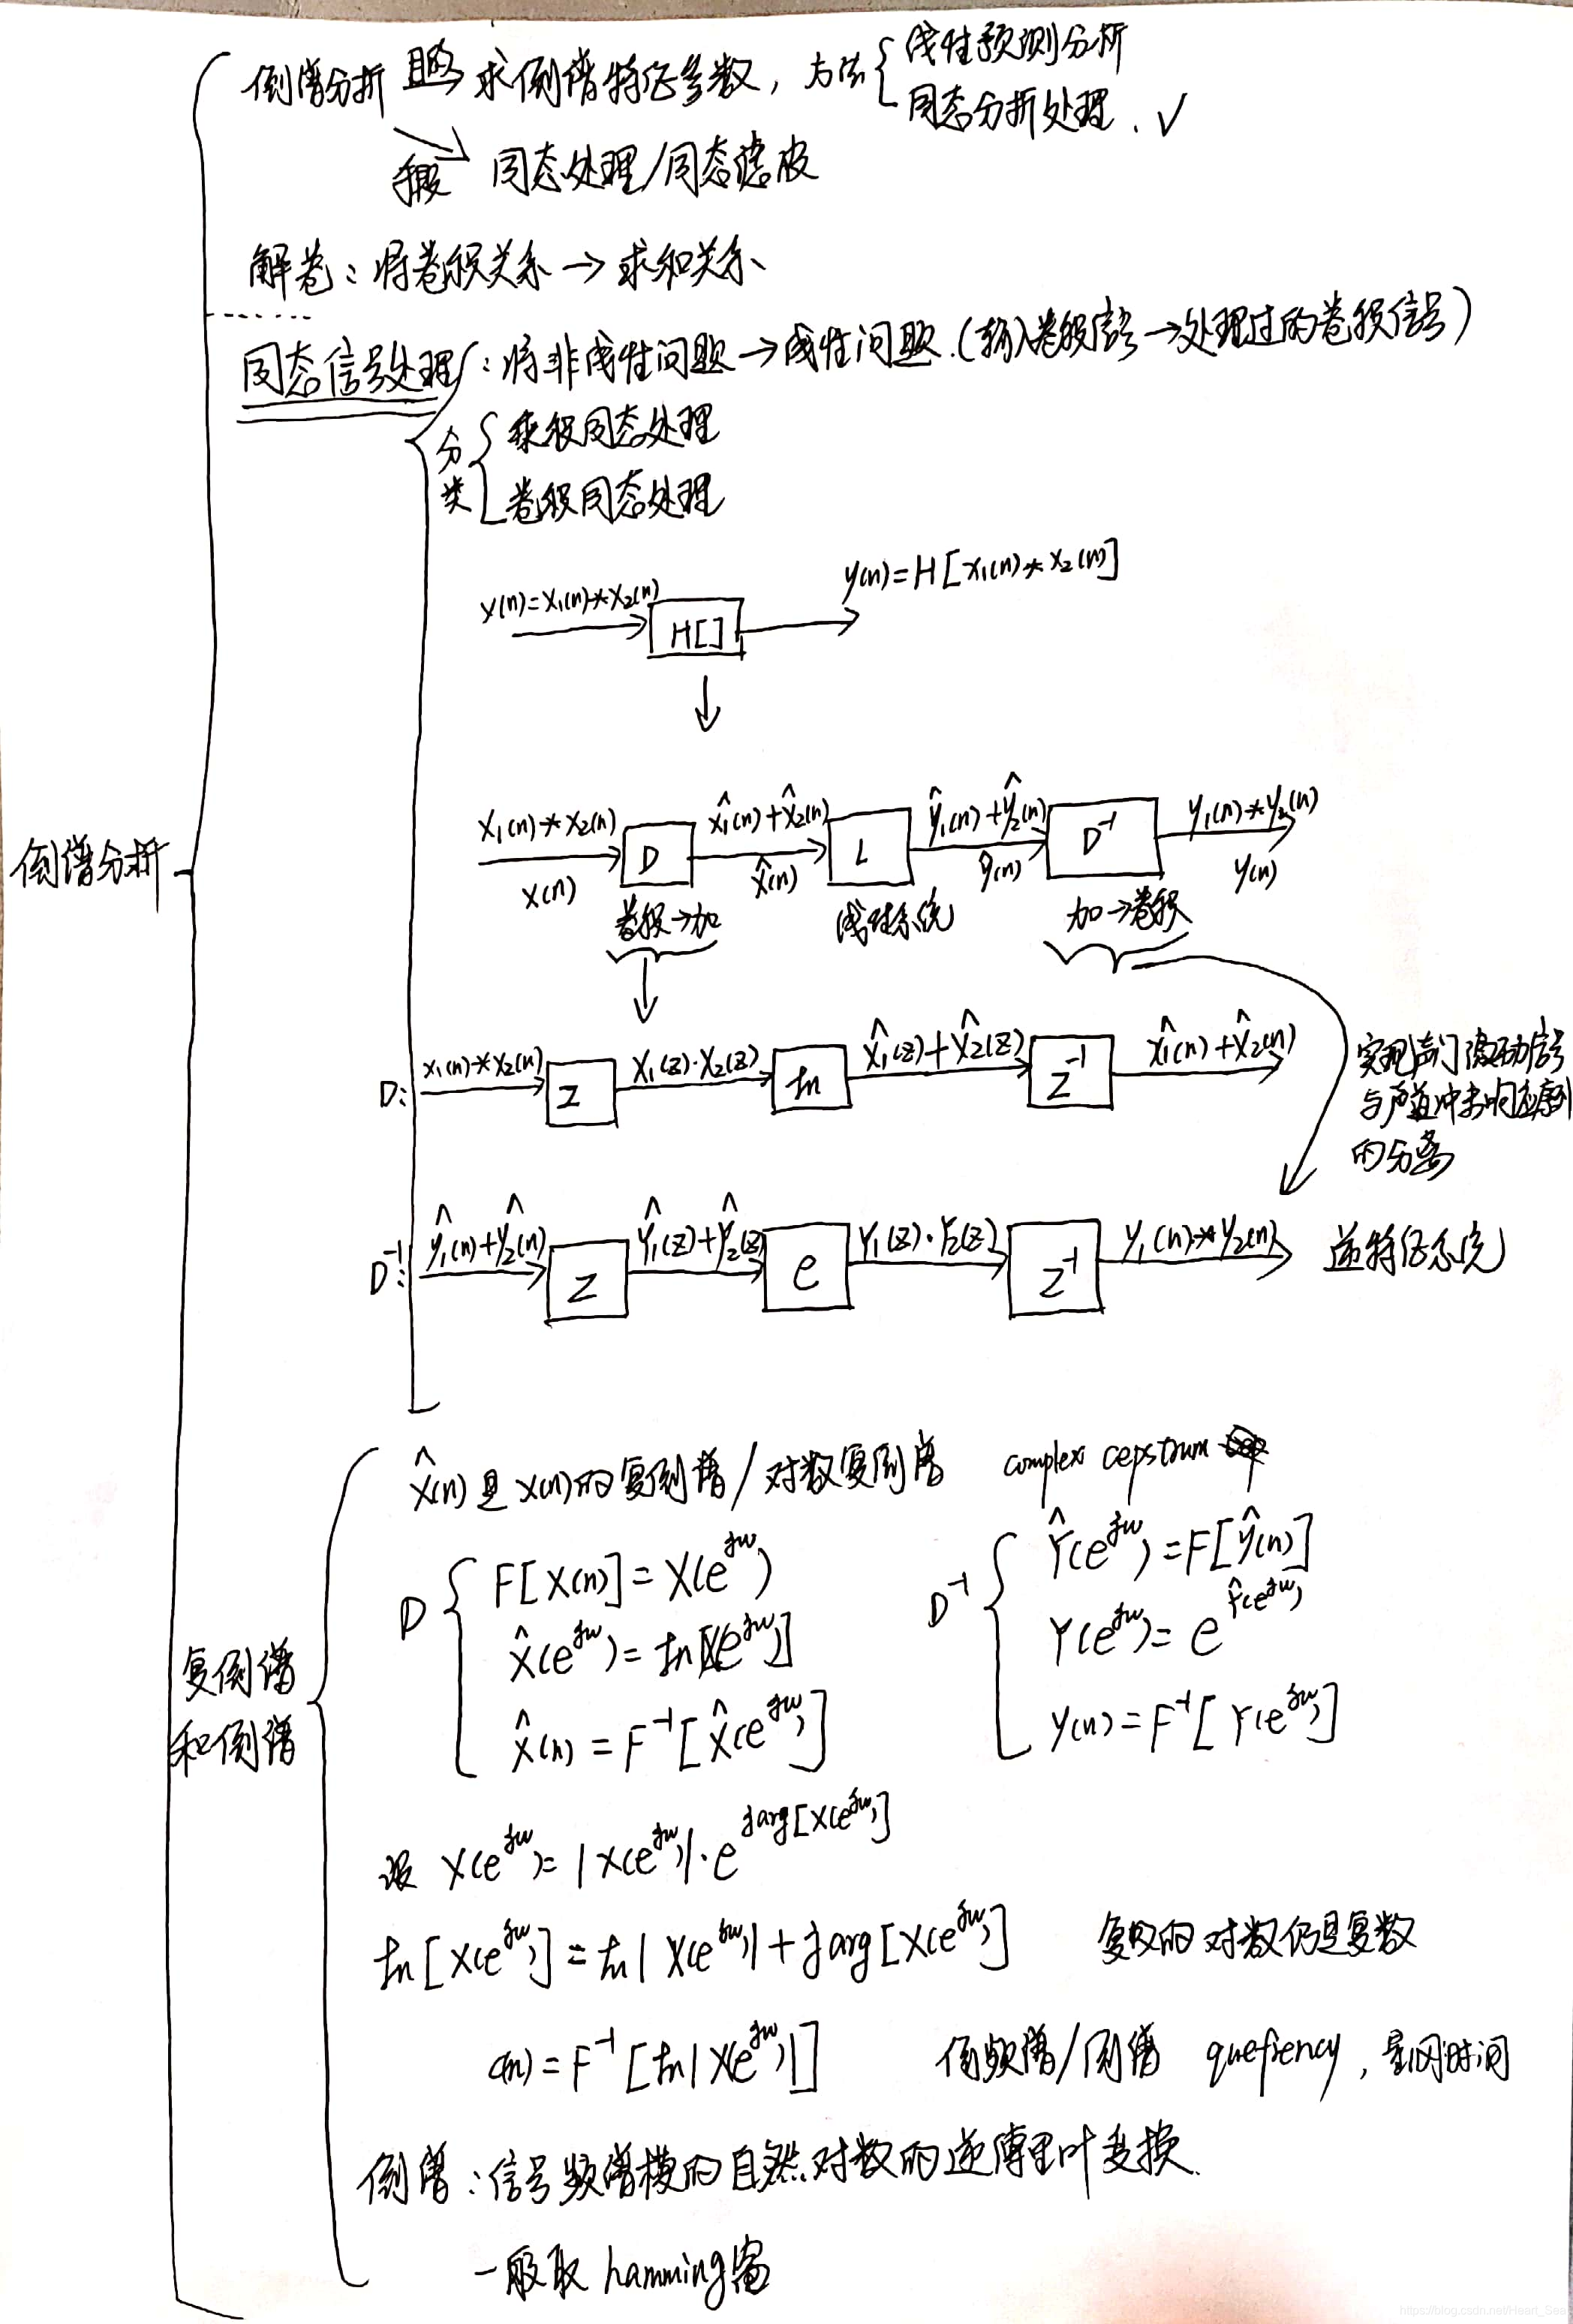 倒谱分析 目的→ 求倒谱特征参数，方法 { 线性预测分析
同态分析处理. √
同态处理/同态滤波
解卷：将卷积关系 → 求和关系
同态信号处理：将非线性问题→线性问题.(输入卷积信号→处理过的卷积信号)
分类 { 乘积同态处理
卷积同态处理
x(n)=x₁(n)*x₂(n) H[] y(n)=H[x₁(n)*x₂(n)]
x₁(n)*x₂(n) D x̂₁(n)+x̂₂(n) L ŷ₁(n)+ŷ₂(n) D⁻¹ y₁(n)*y₂(n)
x(n) x̂(n) ŷ(n) y(n)
倒谱分析
卷积→加 线性系统 加→卷积
D: x₁(n)*x₂(n) Z X₁(z)·X₂(z) ln X̂₁(z)+X̂₂(z) Z⁻¹ x̂₁(n)+x̂₂(n)
实现声门激励信号
与声道冲击响应序列
的分离
D⁻¹: ŷ₁(n)+ŷ₂(n) Z Ŷ₁(z)+Ŷ₂(z) e Y₁(z)·Y₂(z) Z⁻¹ y₁(n)*y₂(n) 逆特征系统
复倒谱
和倒谱
x̂(n)是x(n)的复倒谱/对数复倒谱 complex cepstrum
D { F[x(n)]=X(e^jw)
X̂(e^jw)=ln[X(e^jw)]
x̂(n)=F⁻¹[X̂(e^jw)]
D⁻¹ { Ŷ(e^jw)=F[ŷ(n)]
Y(e^jw)=e^Ŷ(e^jw)
y(n)=F⁻¹[Y(e^jw)]
设 X(e^jw)=|X(e^jw)|·e^jarg[X(e^jw)]
ln[X(e^jw)]=ln|X(e^jw)|+jarg[X(e^jw)] 复数的对数仍是复数
c(n)=F⁻¹[ln|X(e^jw)|] 倒频谱/倒谱 quefrency，量纲时间
倒谱：信号频谱模的自然对数的逆傅里叶变换.
一般取 hamming窗
https://blog.csdn.net/Heart_Sea